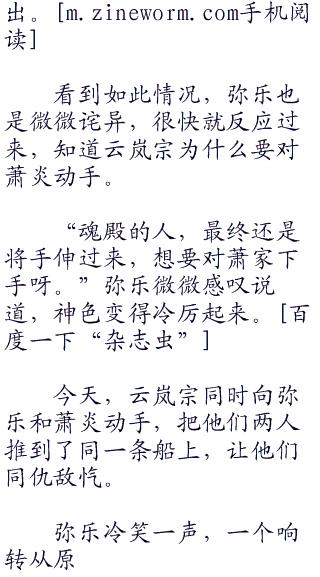 出。[m.zineworm.com手机阅
读]
看到如此情况，弥乐也
是微微诧异，很快就反应过
来，知道云岚宗为什么要对
萧炎动手。
“魂殿的人，最终还是
将手伸过来，想要对萧家下
手呀。”弥乐微微感叹说
道，神色变得冷厉起来。[百
度一下“杂志虫”]
今天，云岚宗同时向弥
乐和萧炎动手，把他们两人
推到了同一条船上，让他们
同仇敌忾。
弥乐冷笑一声，一个响
转从原